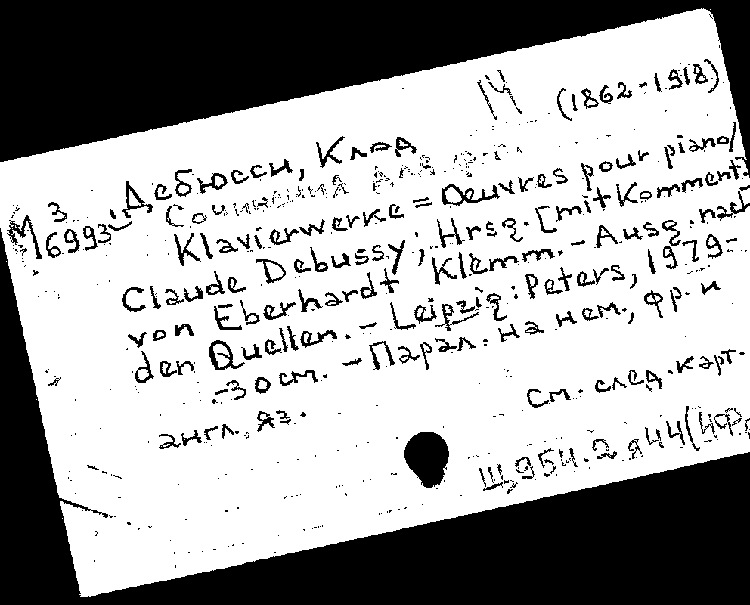 И (1862-1918)
Дебюсси, Клод
М 3
16993 Сочинения для ф-п.
Klavierwerke = Oeuvres pour piano/
Claude Debussy; Hrsg. [mit Komment.]
von Eberhardt Klemm. - Ausg. nach
den Quellen. - Leipzig: Peters, 1979-
.-30 см. - Парал. на нем., фр. и
англ. яз.
См. след. карт.
Щ954.2 я44(4Фр